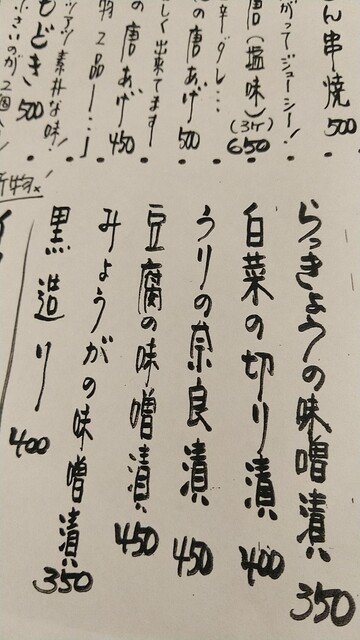 ん串焼 500
がってジューシー!
唐(塩味)(3ケ) 650
の唐あげ 500
しく出来てます
の唐あげ 450
物2品ー…」
アツ素朴な味!
もどき 500
らっきょうの味噌漬 350
白菜の切り漬 400
うりの奈良漬 450
豆腐の味噌漬 450
みょうがの味噌漬 350
黒造り 400